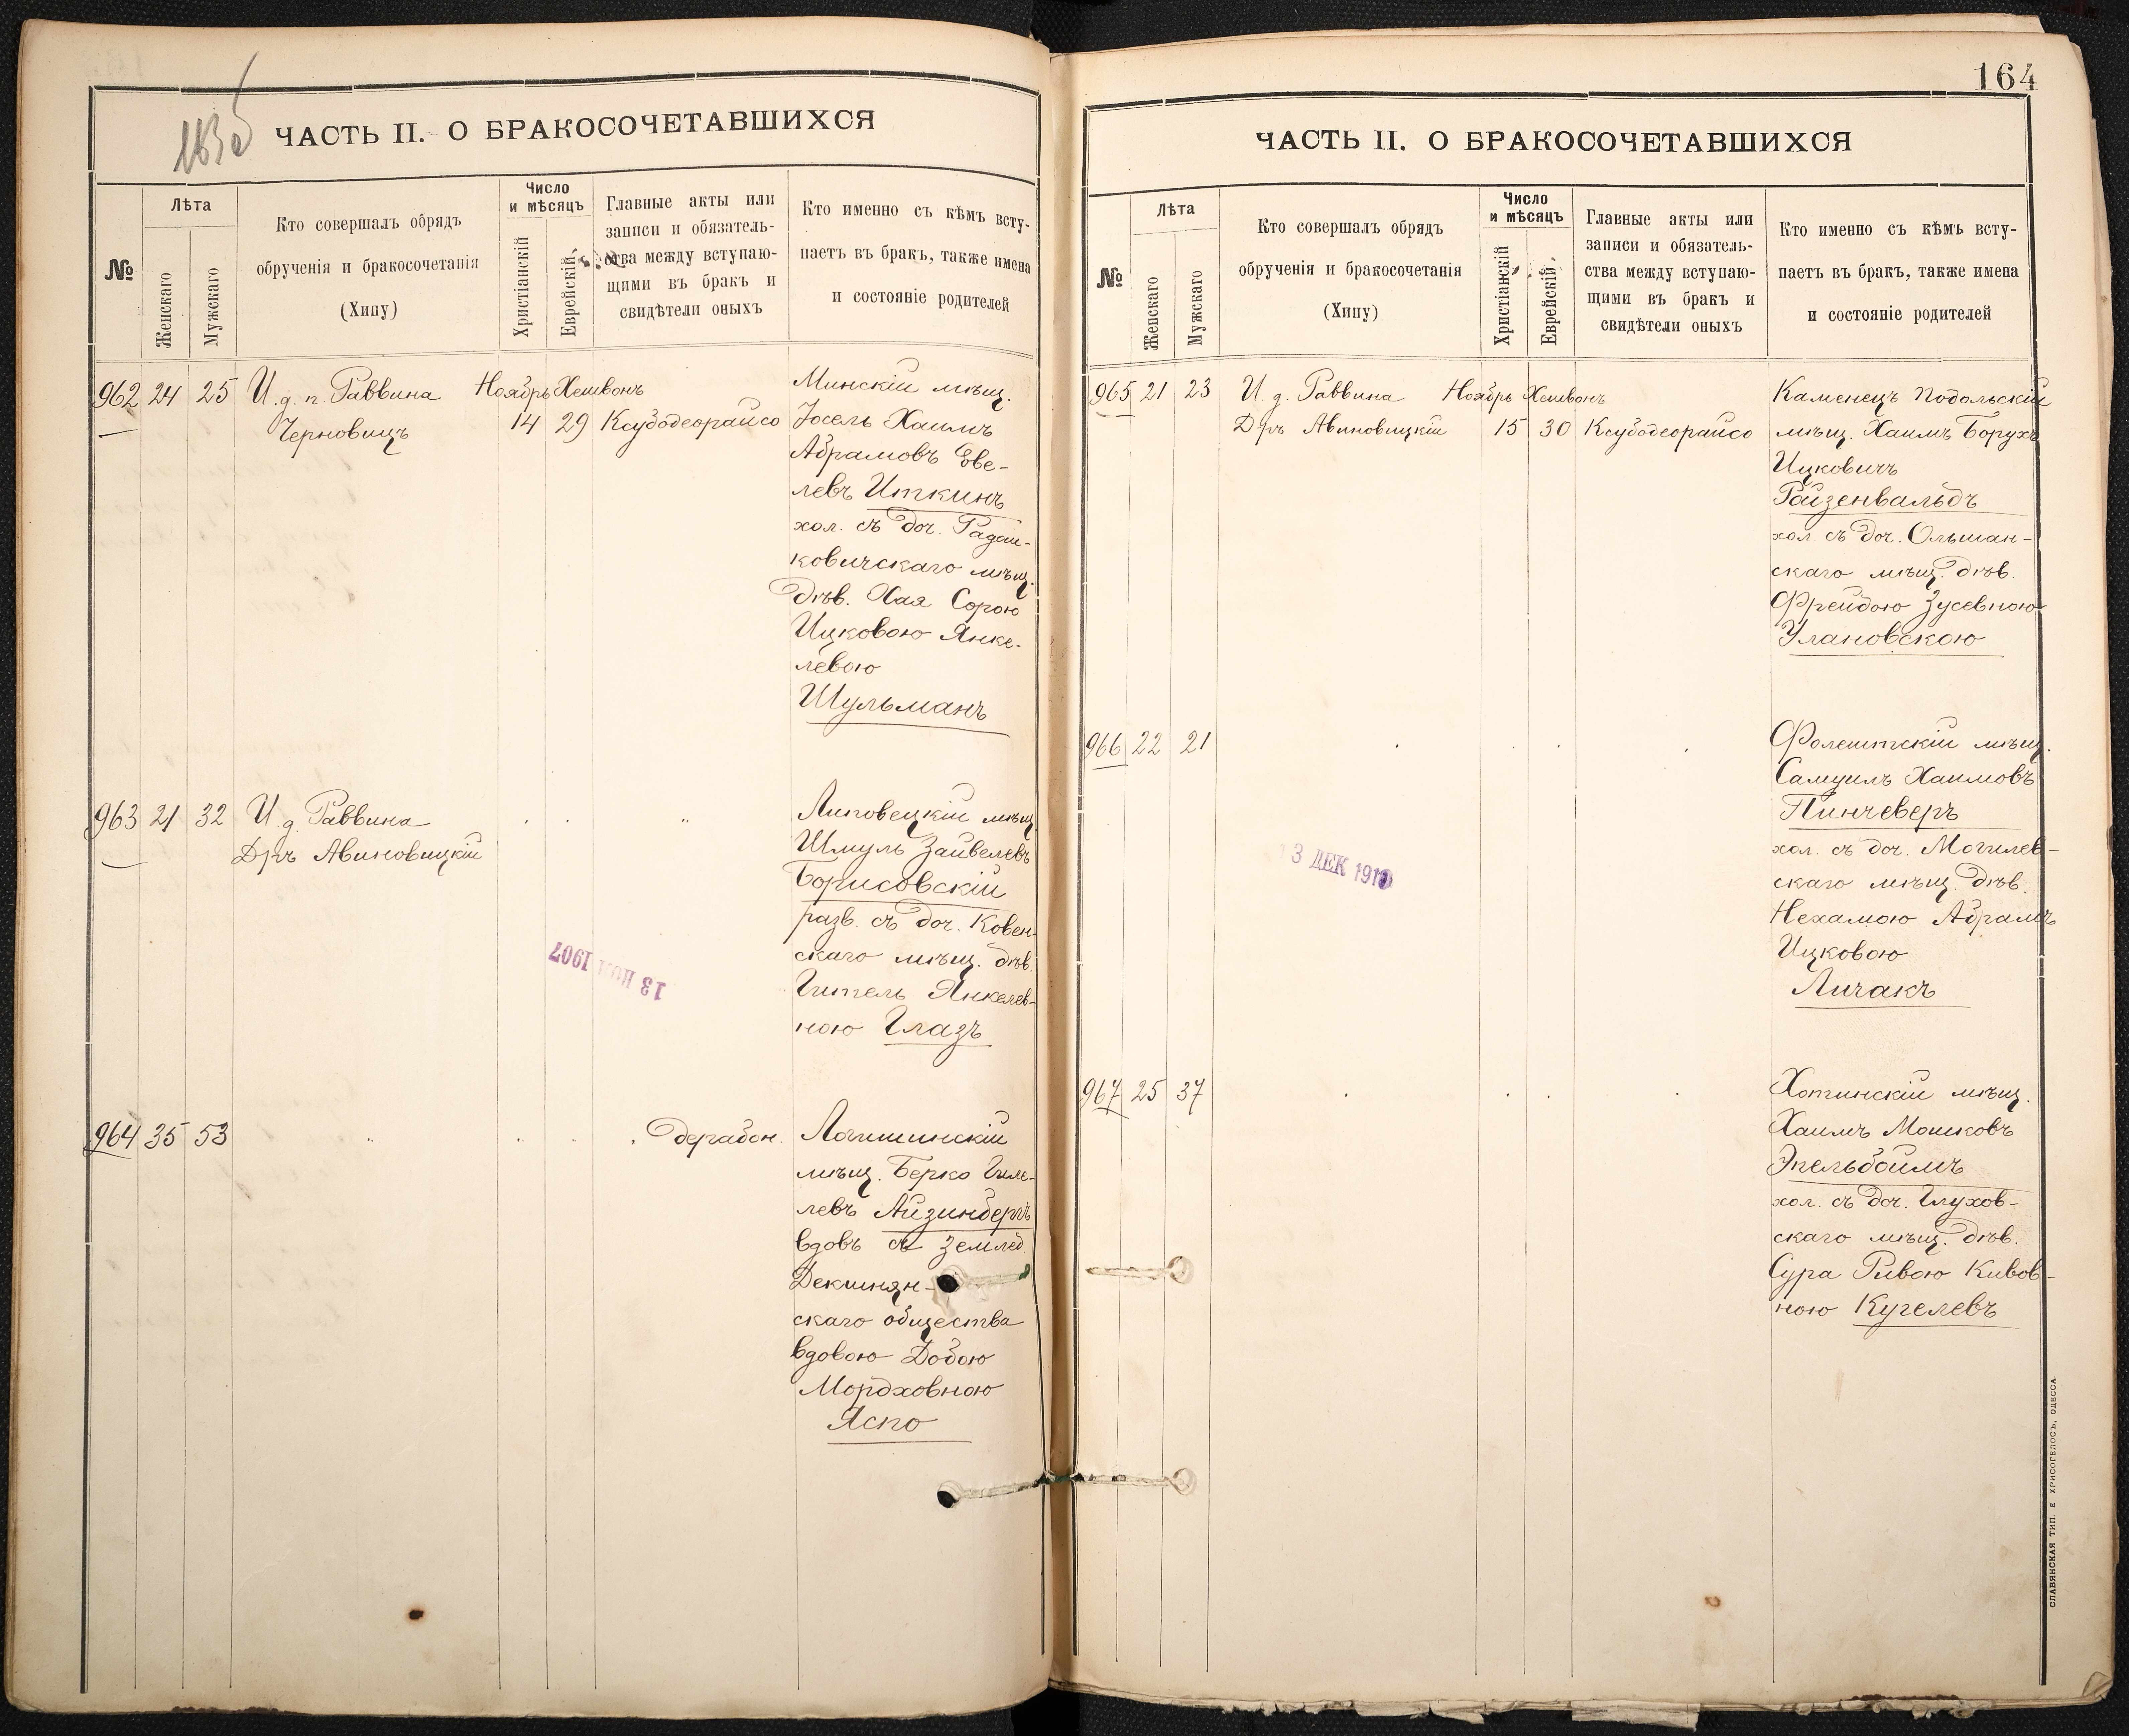 163 об
ЧАСТЬ II. О БРАКОСОЧЕТАВШИХСЯ
№
Лѣта
Женскаго
Мужскаго
Кто совершалъ обрядъ
обрученія и бракосочетанія
(Хипу)
Число
и мѣсяцъ
Христіанскій
Еврейскій
Главные акты или
записи и обязатель-
ства между вступаю-
щими въ бракъ и
свидѣтели оныхъ
Кто именно съ кѣмъ всту-
паетъ въ бракъ, также имена
и состояніе родителей
962 24 25 И. д. п. Раввина Ноябрь Хешвонъ
Черновицъ 14 29 Ксубодеорайсо
Минскій мѣщ.
Іосель Хаимъ
Абрамовъ Еве-
левъ Иткинъ
хол. съ доч. Радош-
ковичскаго мѣщ.
дѣв. Хая Сорою
Ицковою Янке-
левою
Шульманъ
963 21 32 И. д. Раввина
Дръ Авиновицкій
Липовецкій мѣщ.
Шмуль Зайвелевъ
Борисовскій
разв. съ доч. Ковен-
скаго мѣщ. дѣв.
Гитель Янкелев-
ною Глазъ
13 НОЯ 1907
964 35 53 " дерабон.
Логишинскій
мѣщ. Берко Гиле-
левъ Айзинбергъ
вдовъ съ землед.
скаго общества
вдовою Добою
Мордховною
Яспо
164
ЧАСТЬ II. О БРАКОСОЧЕТАВШИХСЯ
№
Лѣта
Женскаго
Мужскаго
Кто совершалъ обрядъ
обрученія и бракосочетанія
(Хипу)
Число
и мѣсяцъ
Христіанскій
Еврейскій
Главные акты или
записи и обязатель-
ства между вступаю-
щими въ бракъ и
свидѣтели оныхъ
Кто именно съ кѣмъ всту-
паетъ въ бракъ, также имена
и состояніе родителей
965 21 23 И. д. Раввина Ноябрь Хешвонъ
Дръ Авиновицкій 15 30 Ксубодеорайсо
Каменецъ Подольскій
мѣщ. Хаимъ Борухъ
Ицковичъ
Ройзенвальдъ
хол. съ доч. Ольшан-
скаго мѣщ. дѣв.
Фрейдою Зусевною
Улановскою
966 22 21
Фолештскій мѣщ.
Самуилъ Хаимовъ
Пинчеверъ
хол. съ доч. Могилев-
скаго мѣщ. дѣв.
Нехамою Абрамъ
Ицковою
Личакъ
3 ДЕК 1910
967 25 37
Хотинскій мѣщ.
Хаимъ Мошковъ
Эпельбоймъ
хол. съ доч. Глухов-
скаго мѣщ. дѣв.
Сура Ривою Кивов-
ною Кугелевъ
СЛАВЯНСКАЯ ТИП. Е ХРИСОГЕЛОСЪ, ОДЕССА.